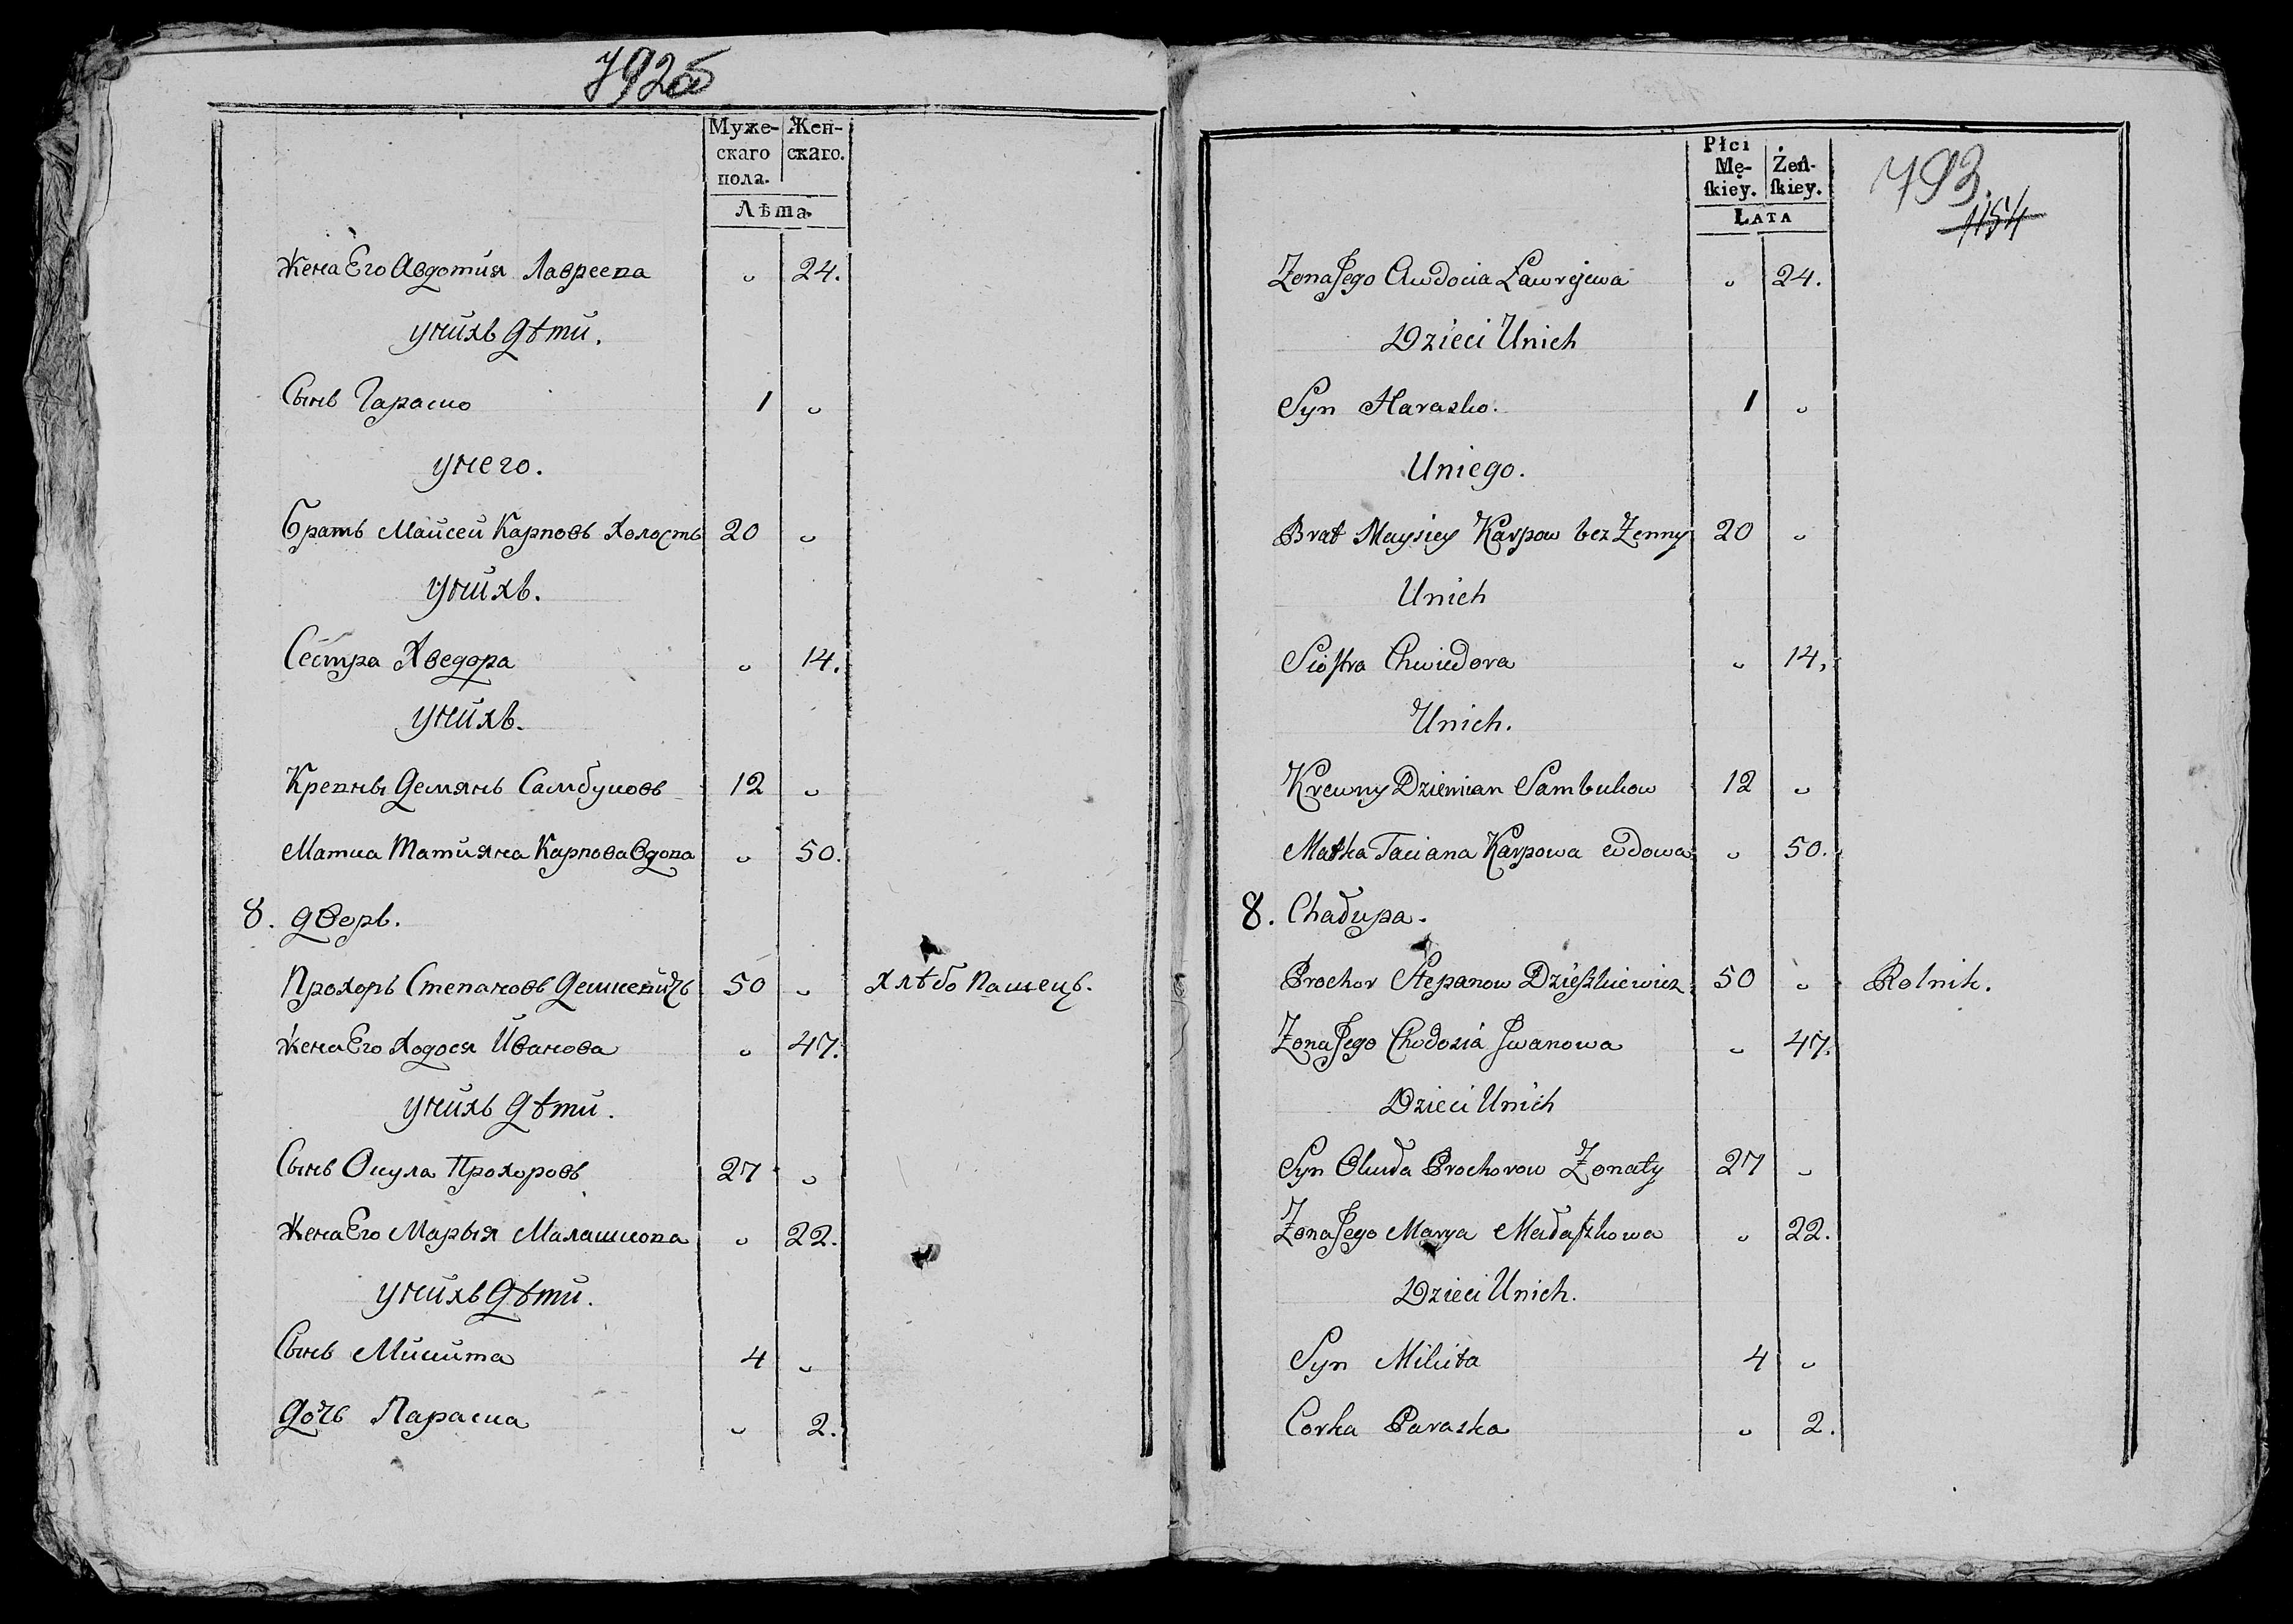 792об
Муже- Жен-
скаго скаго.
пола.
Лѣта.
Жена Его Авдотия Лавреева " 24.
унихъ дѣти.
Сынъ Гараско 1 "
унего.
Братъ Майсей Карповъ Холостъ 20 "
унихъ.
Сестра Хведора " 14.
унихъ.
Кревны Демянъ Самбуковъ 12 "
Матка Татияна Карпова Вдова " 50.
8. дворъ.
Прохоръ Степановъ Дешкевичъ 50 " Хлѣбо Пашецъ.
Жена Его Ходося Иванова " 47.
унихъ дѣти.
Сынъ Окула Прохоровъ 27 "
Жена Его Марья Малашкова " 22.
унихъ дѣти.
Сынъ Микита 4 "
дочь Параска " 2.
793.
1154
Płci
Mę- Żeń-
ſkiey. ſkiey.
LATA
Zona Jego Awdocia Ławrejewa " 24.
Dzieci Unich
Syn Harasko. 1 "
Uniego.
Brat Maysiey Karpow bez Zenny 20 "
Unich
Sioſtra Chwiedora " 14,
Unich.
Krewny Dziemian Sambukow 12 "
Matka Taciana Karpowa wdowa " 50.
8. Chałupa.
Prochor Stepanow Dzieſzkiewicz 50 " Rolnik.
Zona Jego Chodosia Jwanowa " 47.
Dzieci Unich
Syn Okuła Prochorow Zonaty 27 "
Zona Jego Marya Małaſzkowa " 22.
Dzieci Unich.
Syn Mikita 4 "
Corka Paraska " 2.